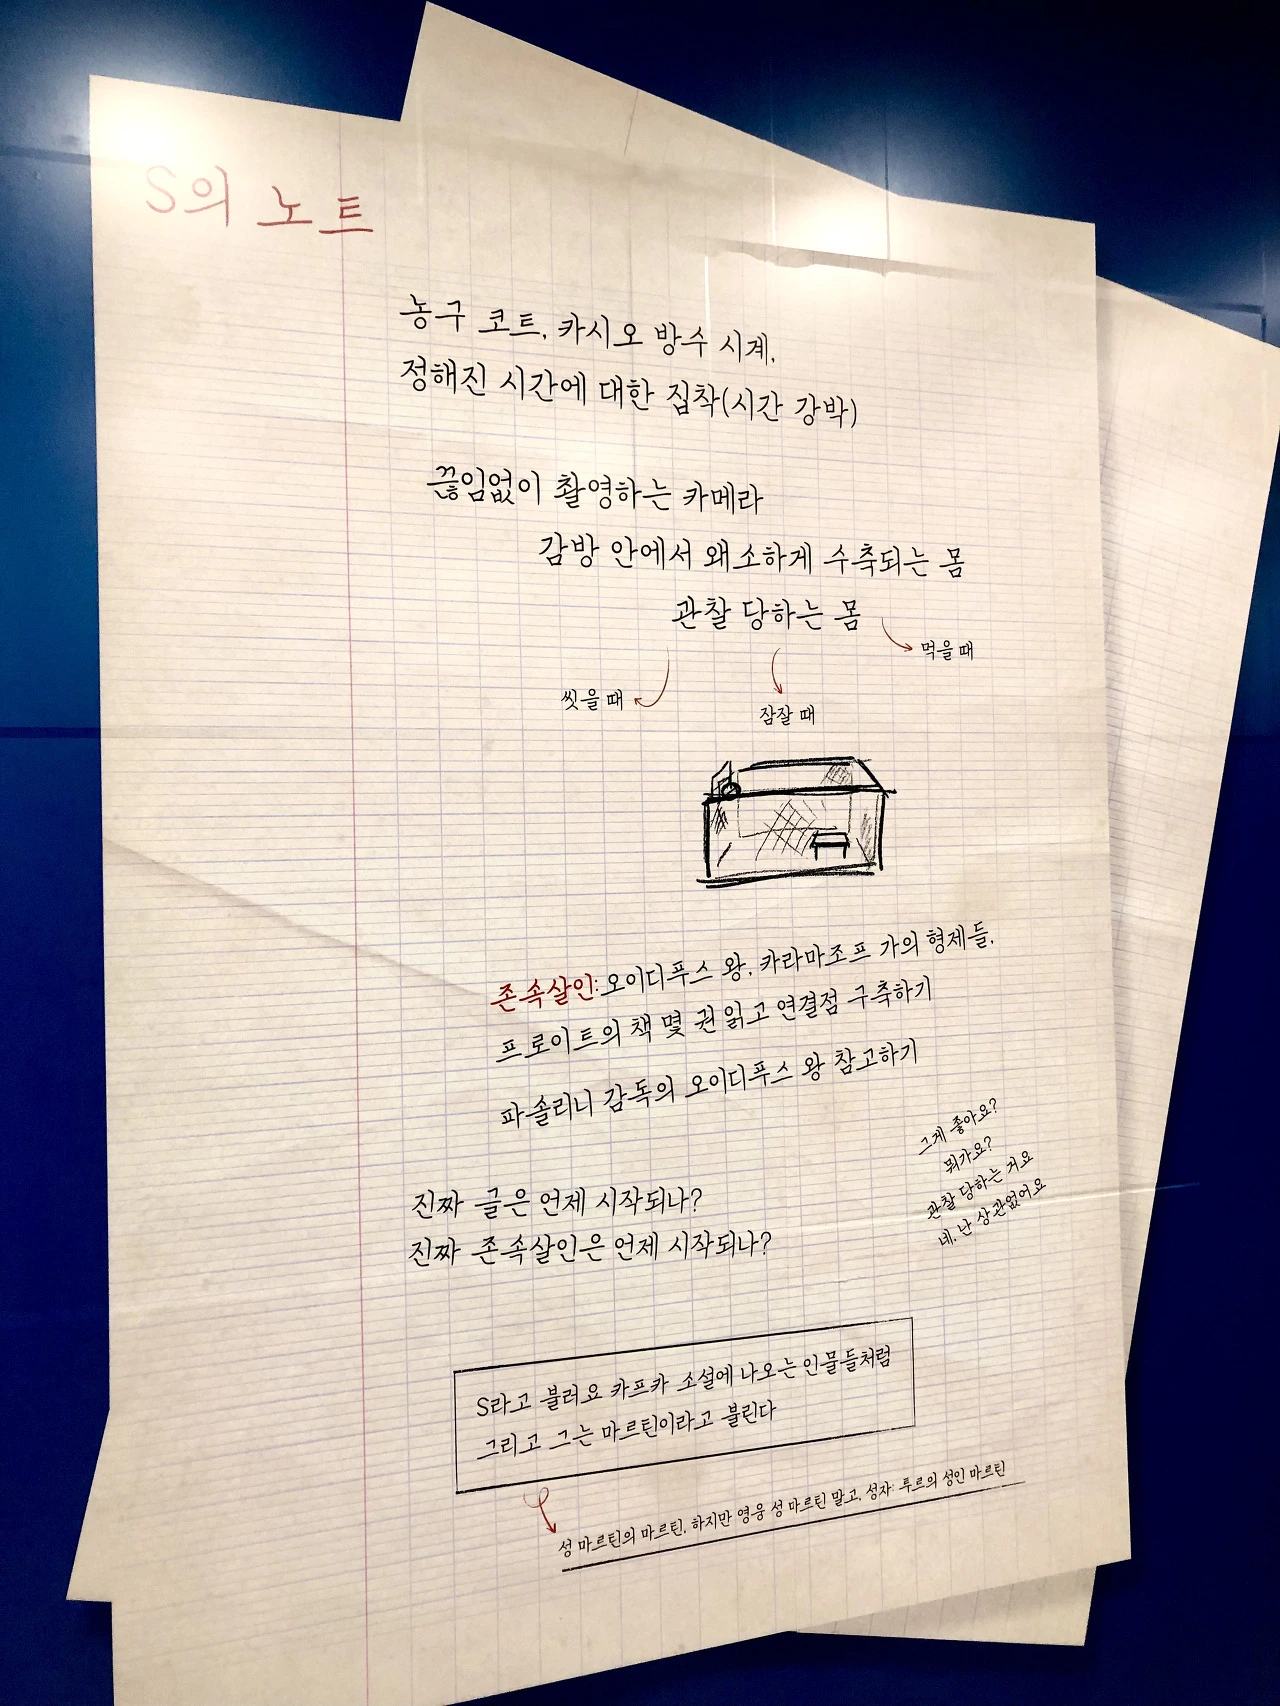 S의 노트
농구 코트, 카시오 방수 시계,
정해진 시간에 대한 집착(시간 강박)
끊임없이 촬영하는 카메라
감방 안에서 왜소하게 수축되는 몸
관찰 당하는 몸
먹을 때
씻을 때
잠잘 때
존속살인: 오이디푸스 왕, 카라마조프 가의 형제들,
프로이트의 책 몇 권 읽고 연결점 구축하기
파솔리니 감독의 오이디푸스 왕 참고하기
그게 좋아요?
뭐가요?
관찰 당하는 거요
네, 난 상관없어요
진짜 글은 언제 시작되나?
진짜 존속살인은 언제 시작되나?
S라고 불러요 카프카 소설에 나오는 인물들처럼
그리고 그는 마르틴이라고 불린다
성 마르틴의 마르틴, 하지만 영웅 성 마르틴 말고, 성자: 투르의 성인 마르틴